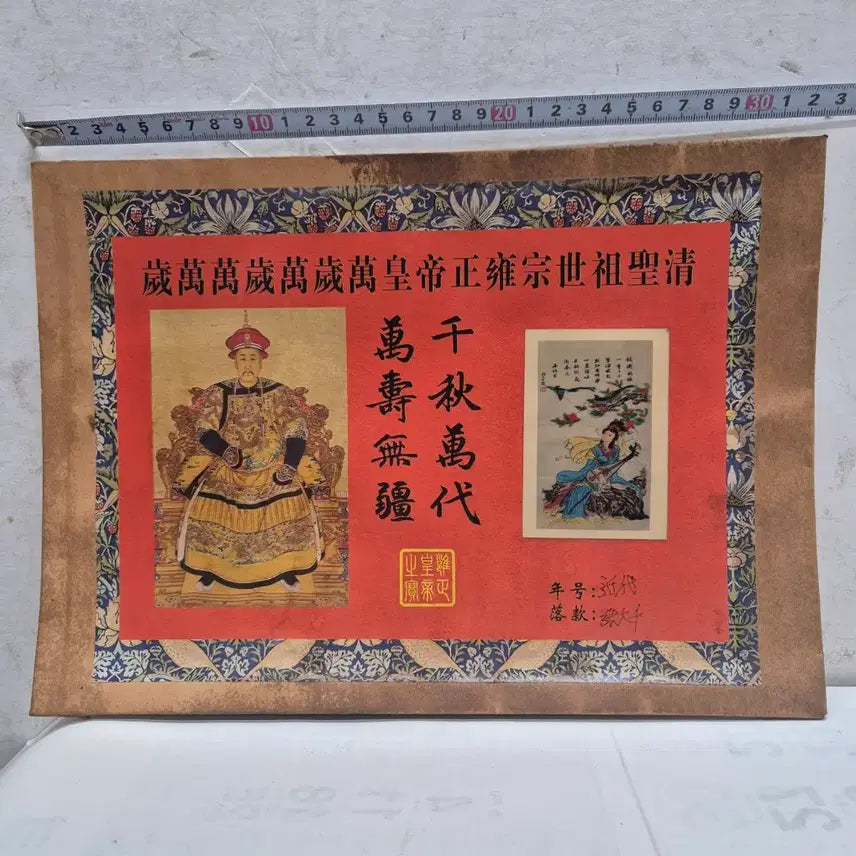 2 3 4 5 6 7 8 9 10 1 2 3 4 5 6 7 8 9 20 1 2 3 4 5 6 7 8 9 30 1 2 3
清聖祖世宗雍正帝皇萬歲萬歲萬萬歲
千秋萬代
萬壽無疆
雍正
皇帝
之寶
年号:近代
落款:张大千